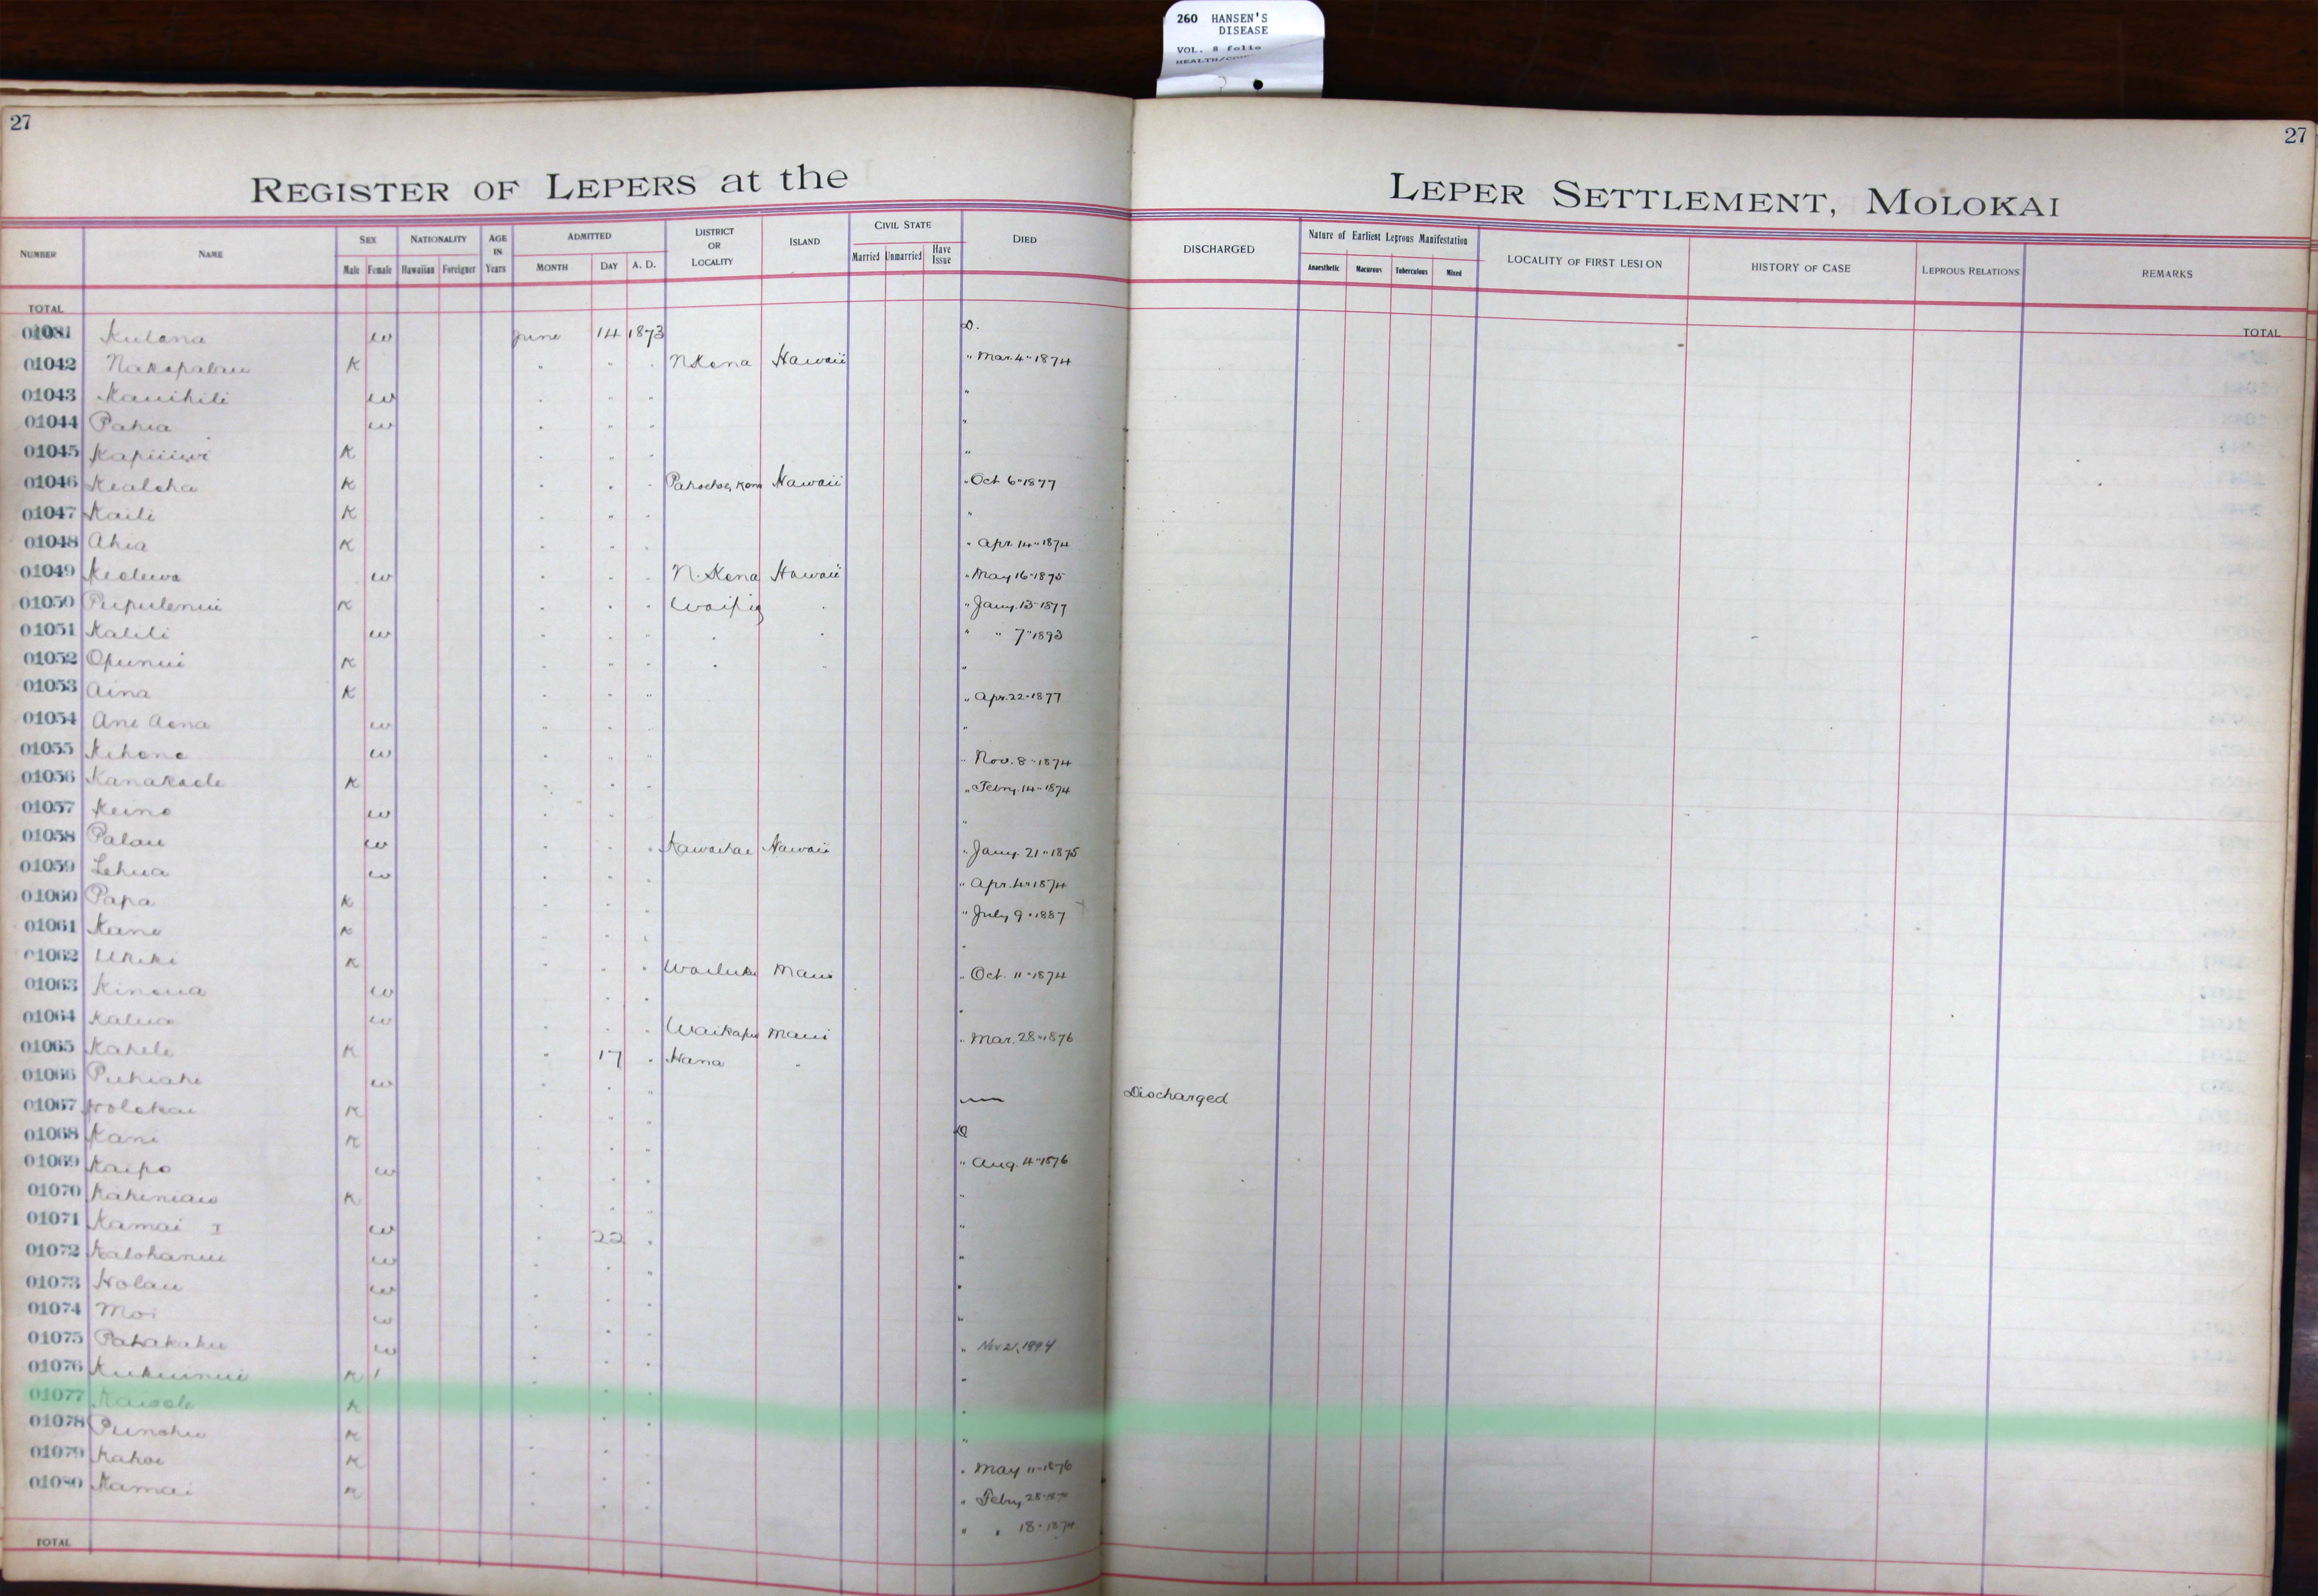 260 HANSEN'S
DISEASE
VOL. 8 folio
27
27
REGISTER OF LEPERS at the LEPER SETTLEMENT, MOLOKAI
NUMBER NAME SEX NATIONALITY AGE IN Years ADMITTED DISTRICT OR LOCALITY ISLAND CIVIL STATE DIED DISCHARGED Nature of Earliest Leprous Manifestation LOCALITY OF FIRST LESION HISTORY OF CASE LEPROUS RELATIONS REMARKS
Male Female Hawaiian Foreigner MONTH DAY A. D. Married Unmarried Have Issue Anaesthetic Macurous Tuberculous Mixed
TOTAL TOTAL
Kulana w June 14 1873 D.
01042 Nakopalau K " " " N Kona Hawaii " Mar. 4 " 1874
01043 Kauihili w " " " "
01044 Pahia w " " " "
01045 K " " " "
01046 Kealoha K " " " Hawaii " Oct 6 " 1877
01047 Kaili K " " " "
01048 Ahia K " " " " Apr. 14 " 1874
01049 w " " " N. Kona Hawaii " May 16 " 1875
01050 Pupulenui K " " " Waipio " " Jany. 13 " 1877
01051 Kalili w " " " " " " " 7 " 1893
01052 Opunui K " " " " " "
01053 Aina K " " " " Apr. 22 " 1877
01054 Ane Aona w " " " "
01055 Kihene w " " " " Nov. 8 " 1874
01056 Kanakaole K " " " " Febry. 14 " 1874
01057 Keino w " " " "
01058 Palau w " " " Kawaihae Hawaii " Jany. 21 " 1875
01059 Lehua w " " " " Apr. 4 " 1874
01060 Papa K " " " " July 9 " 1887
01061 Kane K " " " "
01062 Ukiki K " " " Wailuku Maui " Oct. 11 " 1874
01063 Kinoua w " " " "
01064 Kalua w " " " Waikapu Maui " Mar. 28 " 1876
01065 Kahele K " 17 " Hana "
01066 Puhiahi w " " " — Discharged
01067 Holokai K " " " D
01068 Kani K " " " " Aug. 4 " 1876
01069 Kaipo w " " " "
01070 Kahiniau K " " " "
01071 Kamai I w " 22 " "
01072 Kalohanui w " " " "
01073 Holau w " " " "
01074 Moi w " " " " Nov 21, 1894
01075 Pahakaku w " " " "
01076 Kukuinui K " " " "
01077 Kaiwole K " " " "
01078 Punohu K " " " " May 11 " 1876
01079 Kahoe K " " " " Febry. 28
01080 Kamai K " " " " " 18 " 1874
TOTAL